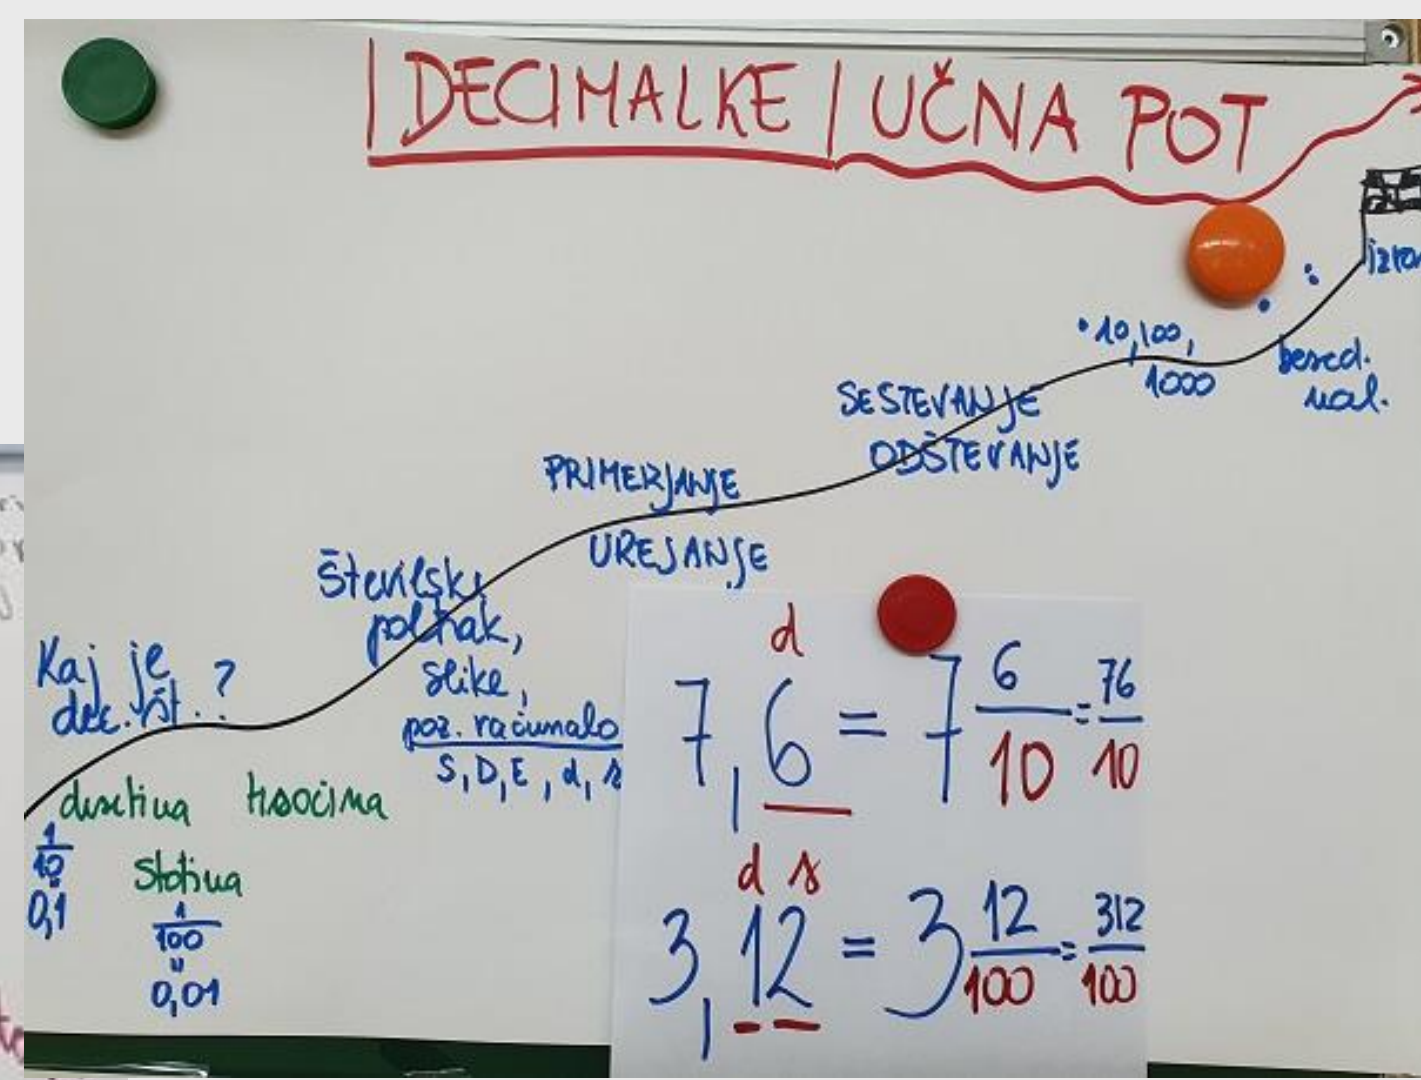 DECIMALKE | UČNA POT
• 10,100,
1000
:
besed.
nal.
SEŠTEVANJE
ODŠTEVANJE
PRIMERJANJE
UREJANJE
Številski
poltrak,
slike,
poz. računalo
S, D, E, d, s
Kaj je
dec. št. ?
desetina tisočina
1/10
=
0,1
stotina
1/100
=
0,01
d
7,6 = 7 6/10 = 76/10
d s
3,12 = 3 12/100 = 312/100